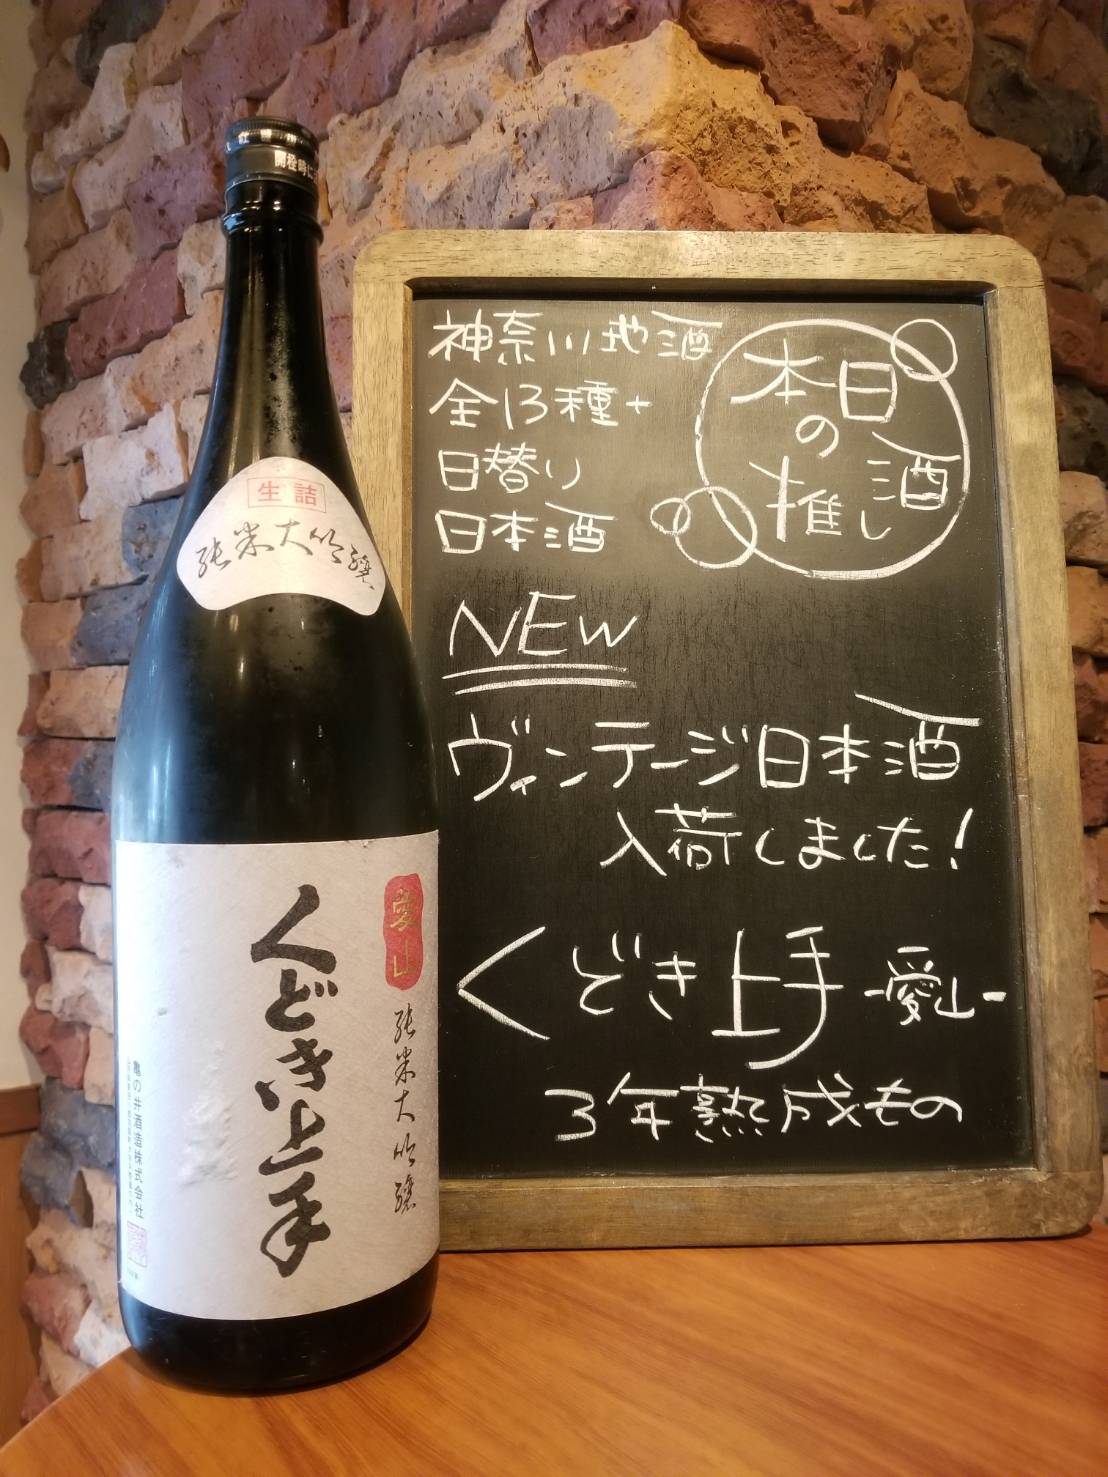 生詰
純米大吟醸
愛山
純米大吟醸
くどき上手
亀の井酒造株式会社
神奈川地酒
全13種+
日替り
日本酒
本日
の
推し酒
NEW
ヴィンテージ日本酒
入荷しました!
くどき上手 -愛山-
3年熟成もの